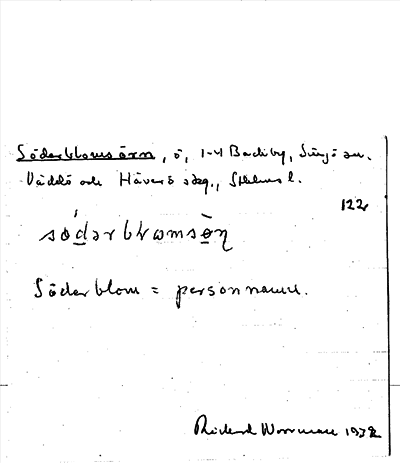 Söderblomsörn, ö, 1-4 Backby, Singö sn.
Väddö och Häverö skg., Sthlms l.
122
sö́dərbɫωmsö̀ṇ
Söderblom = personnamn.
Rickard Wornman 1932